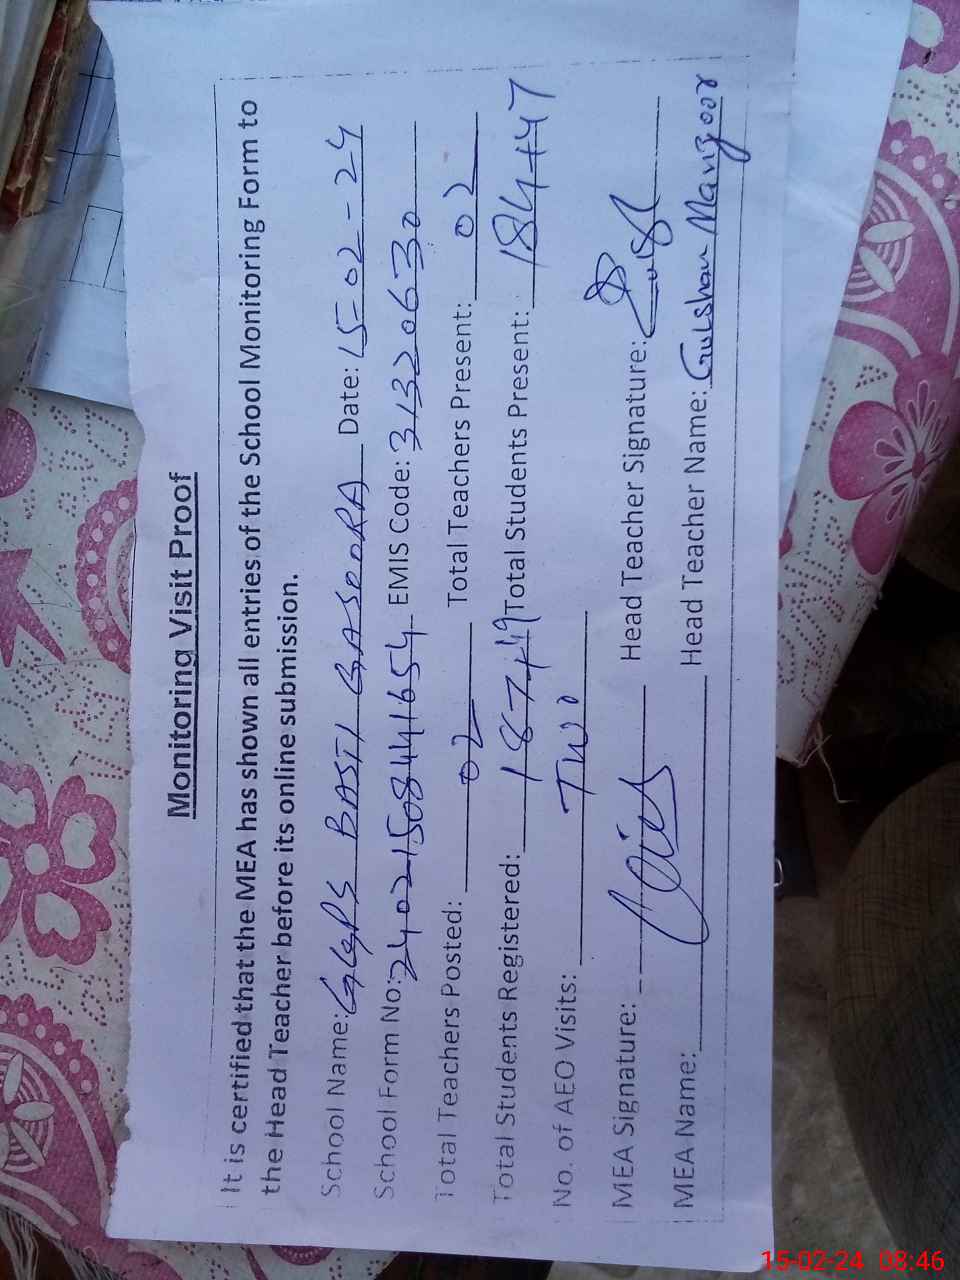 Monitoring Visit Proof
It is certified that the MEA has shown all entries of the School Monitoring Form to
the Head Teacher before its online submission.
School Name: GGPS BASTI GASRORA Date: 15-02-24
School Form No: 24021508441654 EMIS Code: 31320630
Total Teachers Posted: 02 Total Teachers Present: 02
Total Students Registered: 187+49 Total Students Present: 184+47
No. of AEO Visits: Two
MEA Signature: Head Teacher Signature:
MEA Name: Head Teacher Name: Gulshan Manzoor
15-02-24 08:46